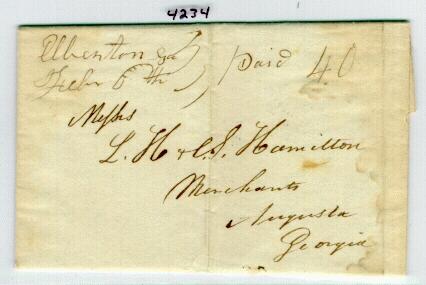 4234
Elberton Ga
Feby 6th
Paid 40
Messrs
L. H & C. S. Hamilton
Merchants
Augusta
Georgia